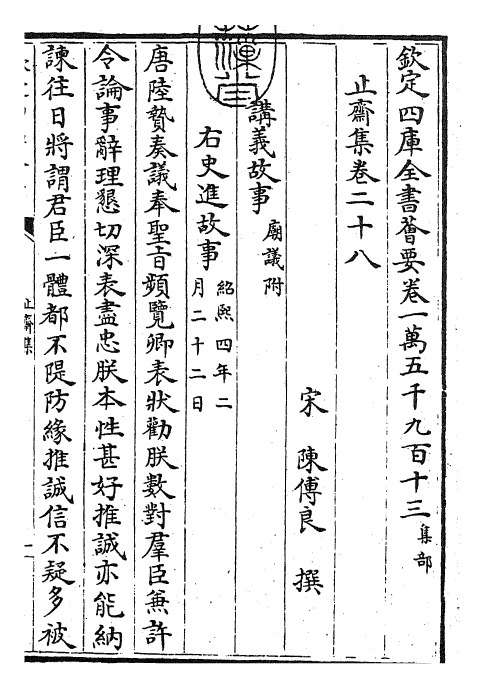 欽定四庫全書薈要卷一萬五千九百十三集部
止齋集卷二十八
宋 陳傅良 撰
講義故事廟議附
右史進故事紹熙四年二
月二十二日
唐陸贄奏議奉聖旨頻覽卿表狀勸朕數對羣臣兼許
令論事辭理懇切深表盡忠朕本性甚好推誠亦能納
諫往日將謂君臣一體都不隄防緣推誠信不疑多被
止齋集